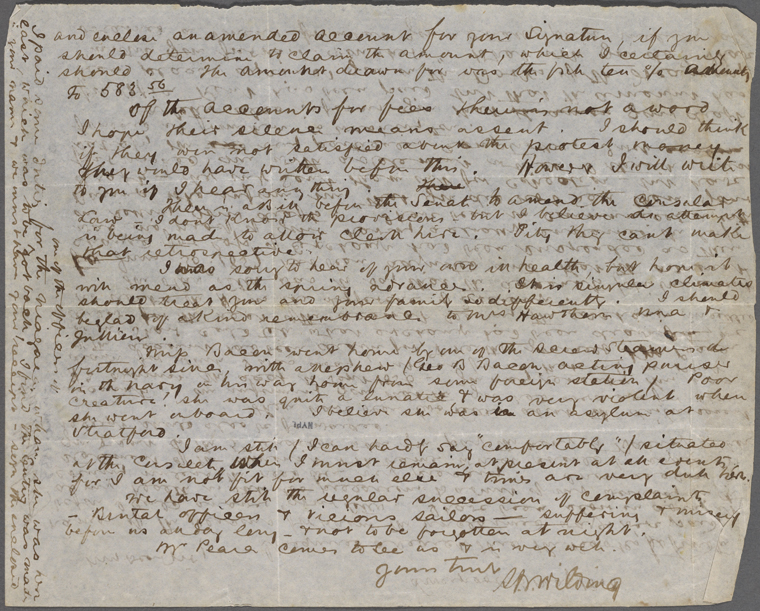 and enclose an amended account for your signature, if you
should determine to claim the amount, which I certainly
should. The amount drawn for was the
To 583 56
Of the accounts for fees there is not a word
I hope their silence means assent. I should think
if they were not satisfied about the protest money
they would have written before this. However I will write
to you if I hear anything.
There's a Bill before the Senate to amend the Consular
Law. I don't know the provisions but I believe an attempt
is being made to allow Clerk hire. Pity they can't make
that retrospective.
I was sorry to hear of your in health but hope it
will mend as the spring advances. similar climates
should treat you and your family so differently. I should
be glad of a kind remembrance to Mrs Hawthorne Una &
Julian.
Miss Bacon went home by one of the screw steamers a
fortnight since, with a nephew (Geo B Bacon, acting purser
in the Navy on his way home from some foreign station) Poor
creature, she was quite a lunatic & was very violent when
she went aboard. I believe she was in an asylum at
Stratford.
I am still (I can hardly say "comfortably") situated
at the Consulate, where I must remain, at present at all events,
for I am not fit for much else & times are very dull here.
We have still the regular succession of complaints
- Brutal officers & vicious sailors - suffering & misery
before us all day long - & not to be forgotten at night.
Mr Pearce comes to see us & is very well.
Yours truly
S Wilding
I paid some duty for the when she was here
last which was to be got back. I find the entry was made
in your name & we must have your receipt